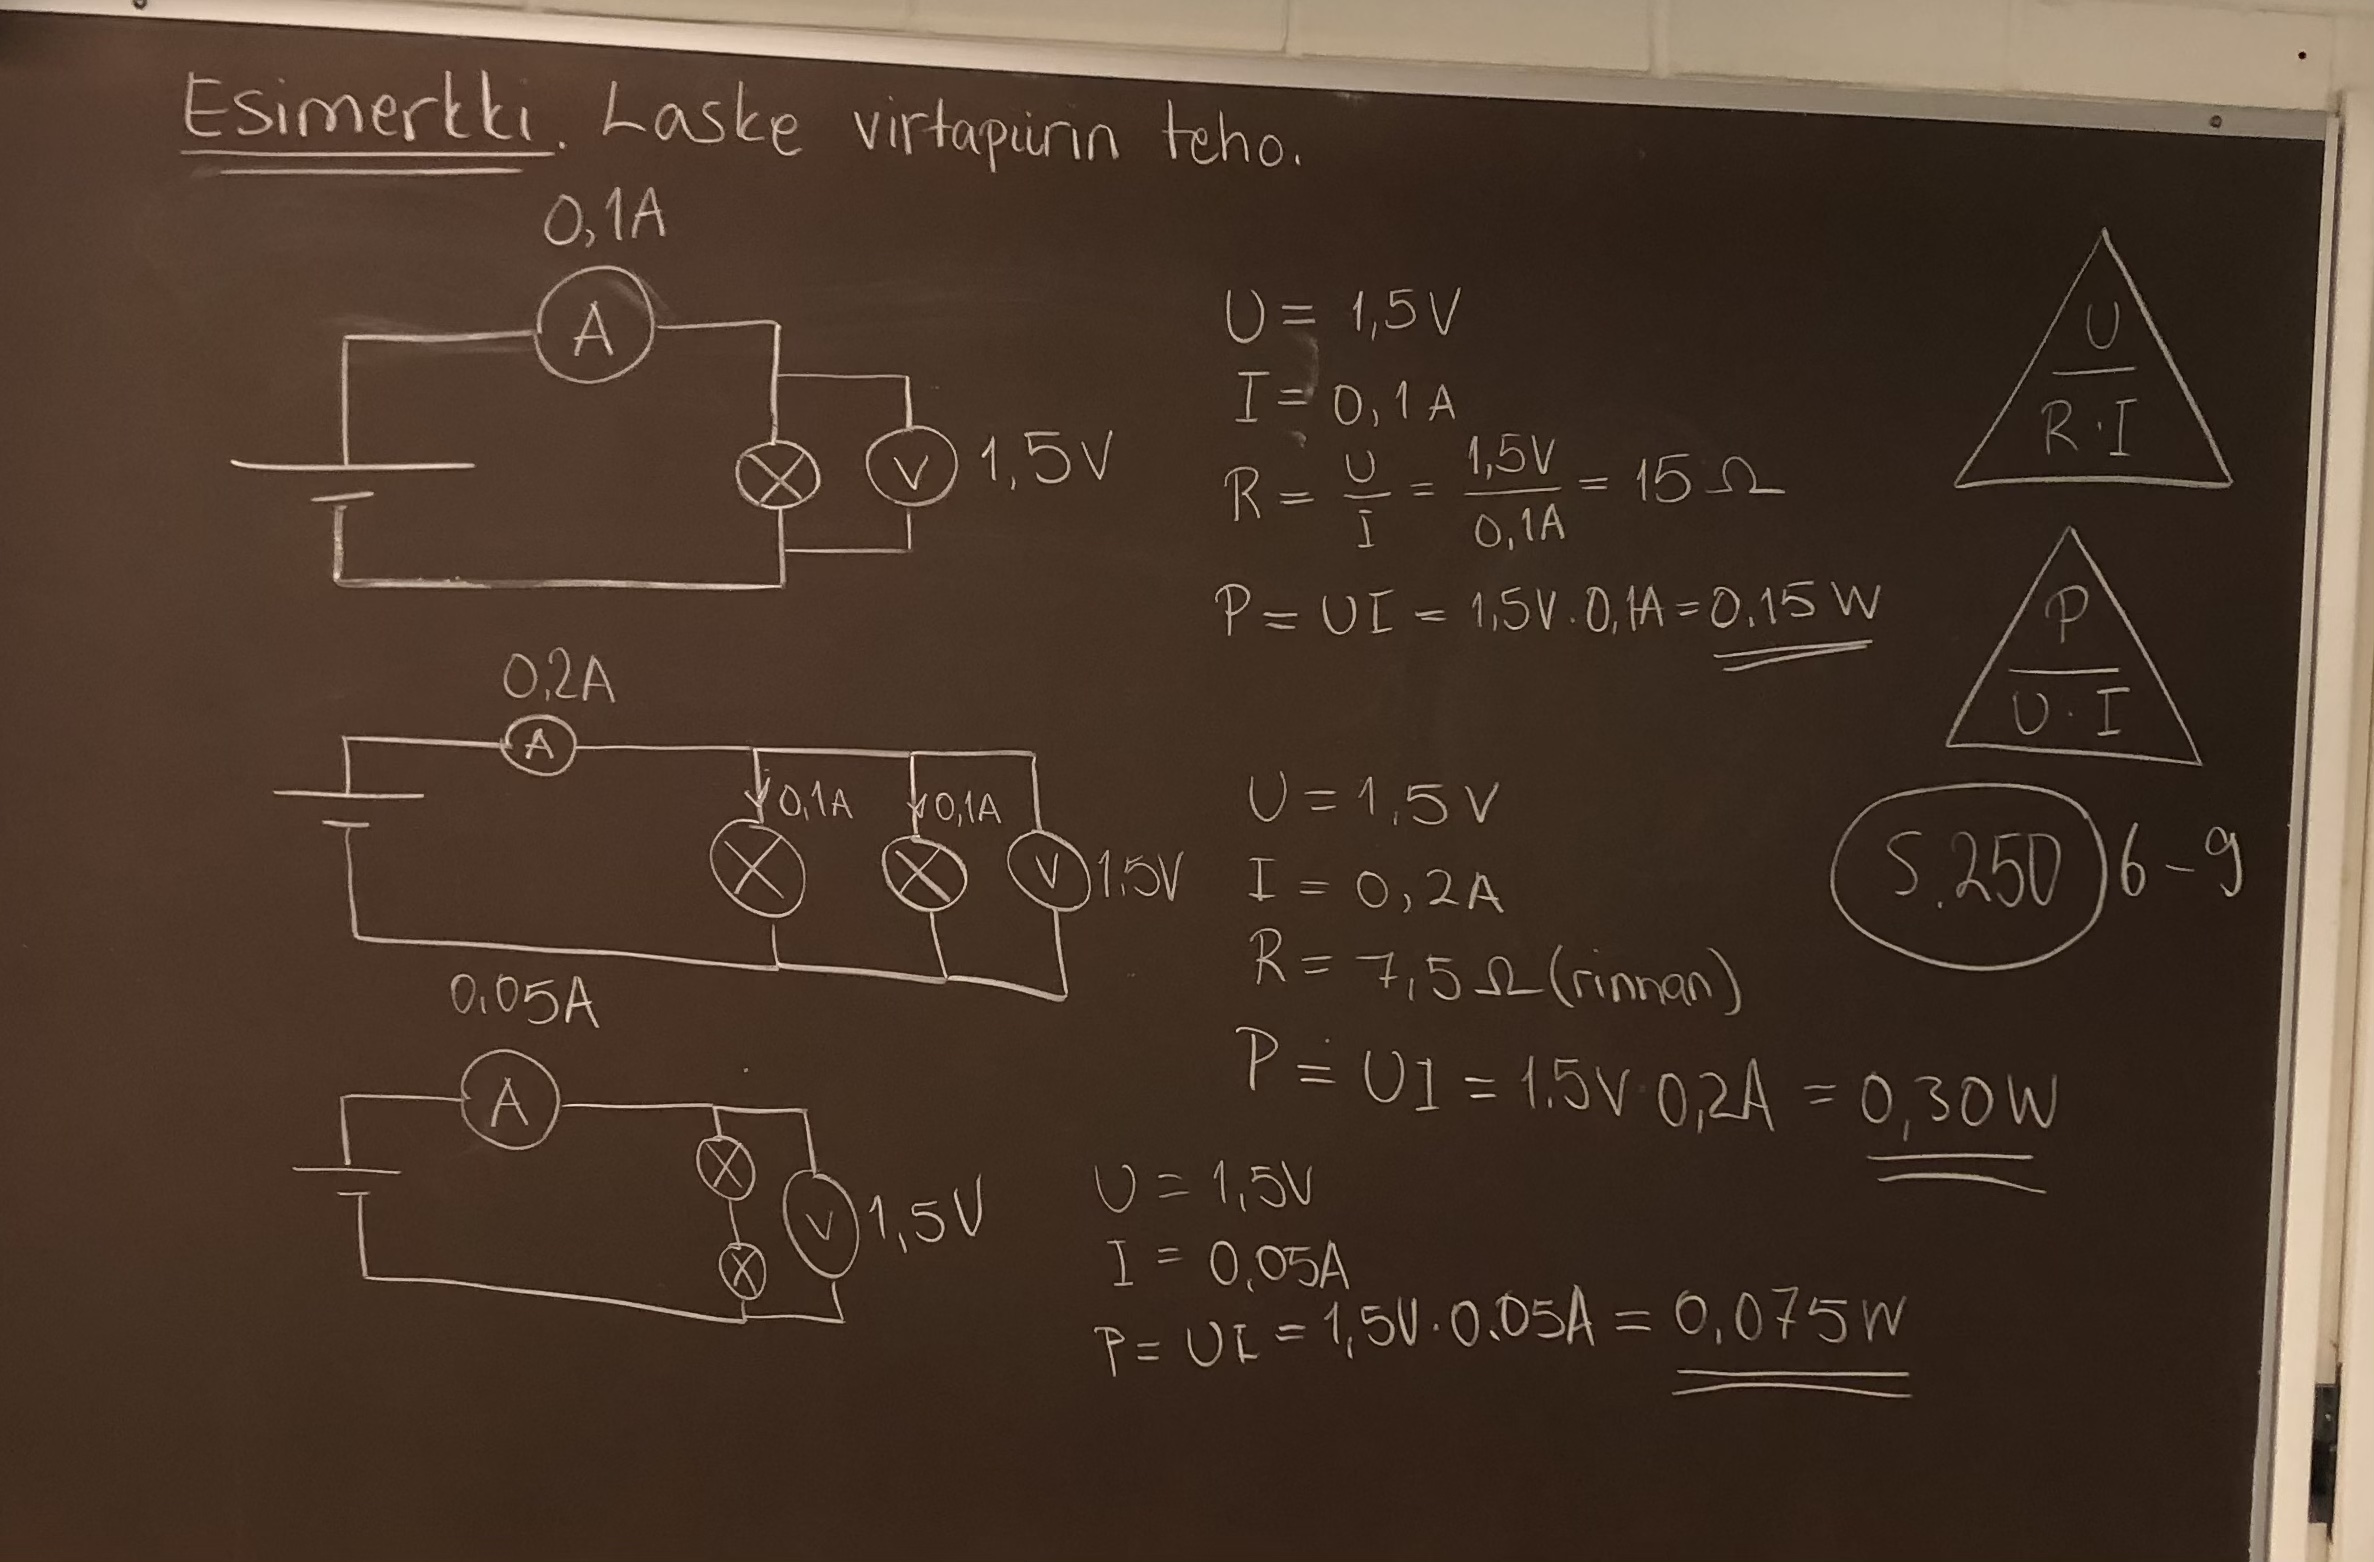 Esimerkki. Laske virtapiirin teho.
0,1A
A
V
1,5V
U = 1,5V
I = 0,1A
R = U/I = 1,5V/0,1A = 15 Ω
P = UI = 1,5V · 0,1A = 0,15 W
U
R · I
P
U · I
0,2A
A
0,1A
0,1A
V
1,5V
U = 1,5V
I = 0,2A
R = 7,5 Ω (rinnan)
P = UI = 1.5V · 0,2A = 0,30W
S.250 6-9
0,05A
A
V
1,5V
U = 1,5V
I = 0,05A
P = UI = 1,5V · 0.05A = 0,075W